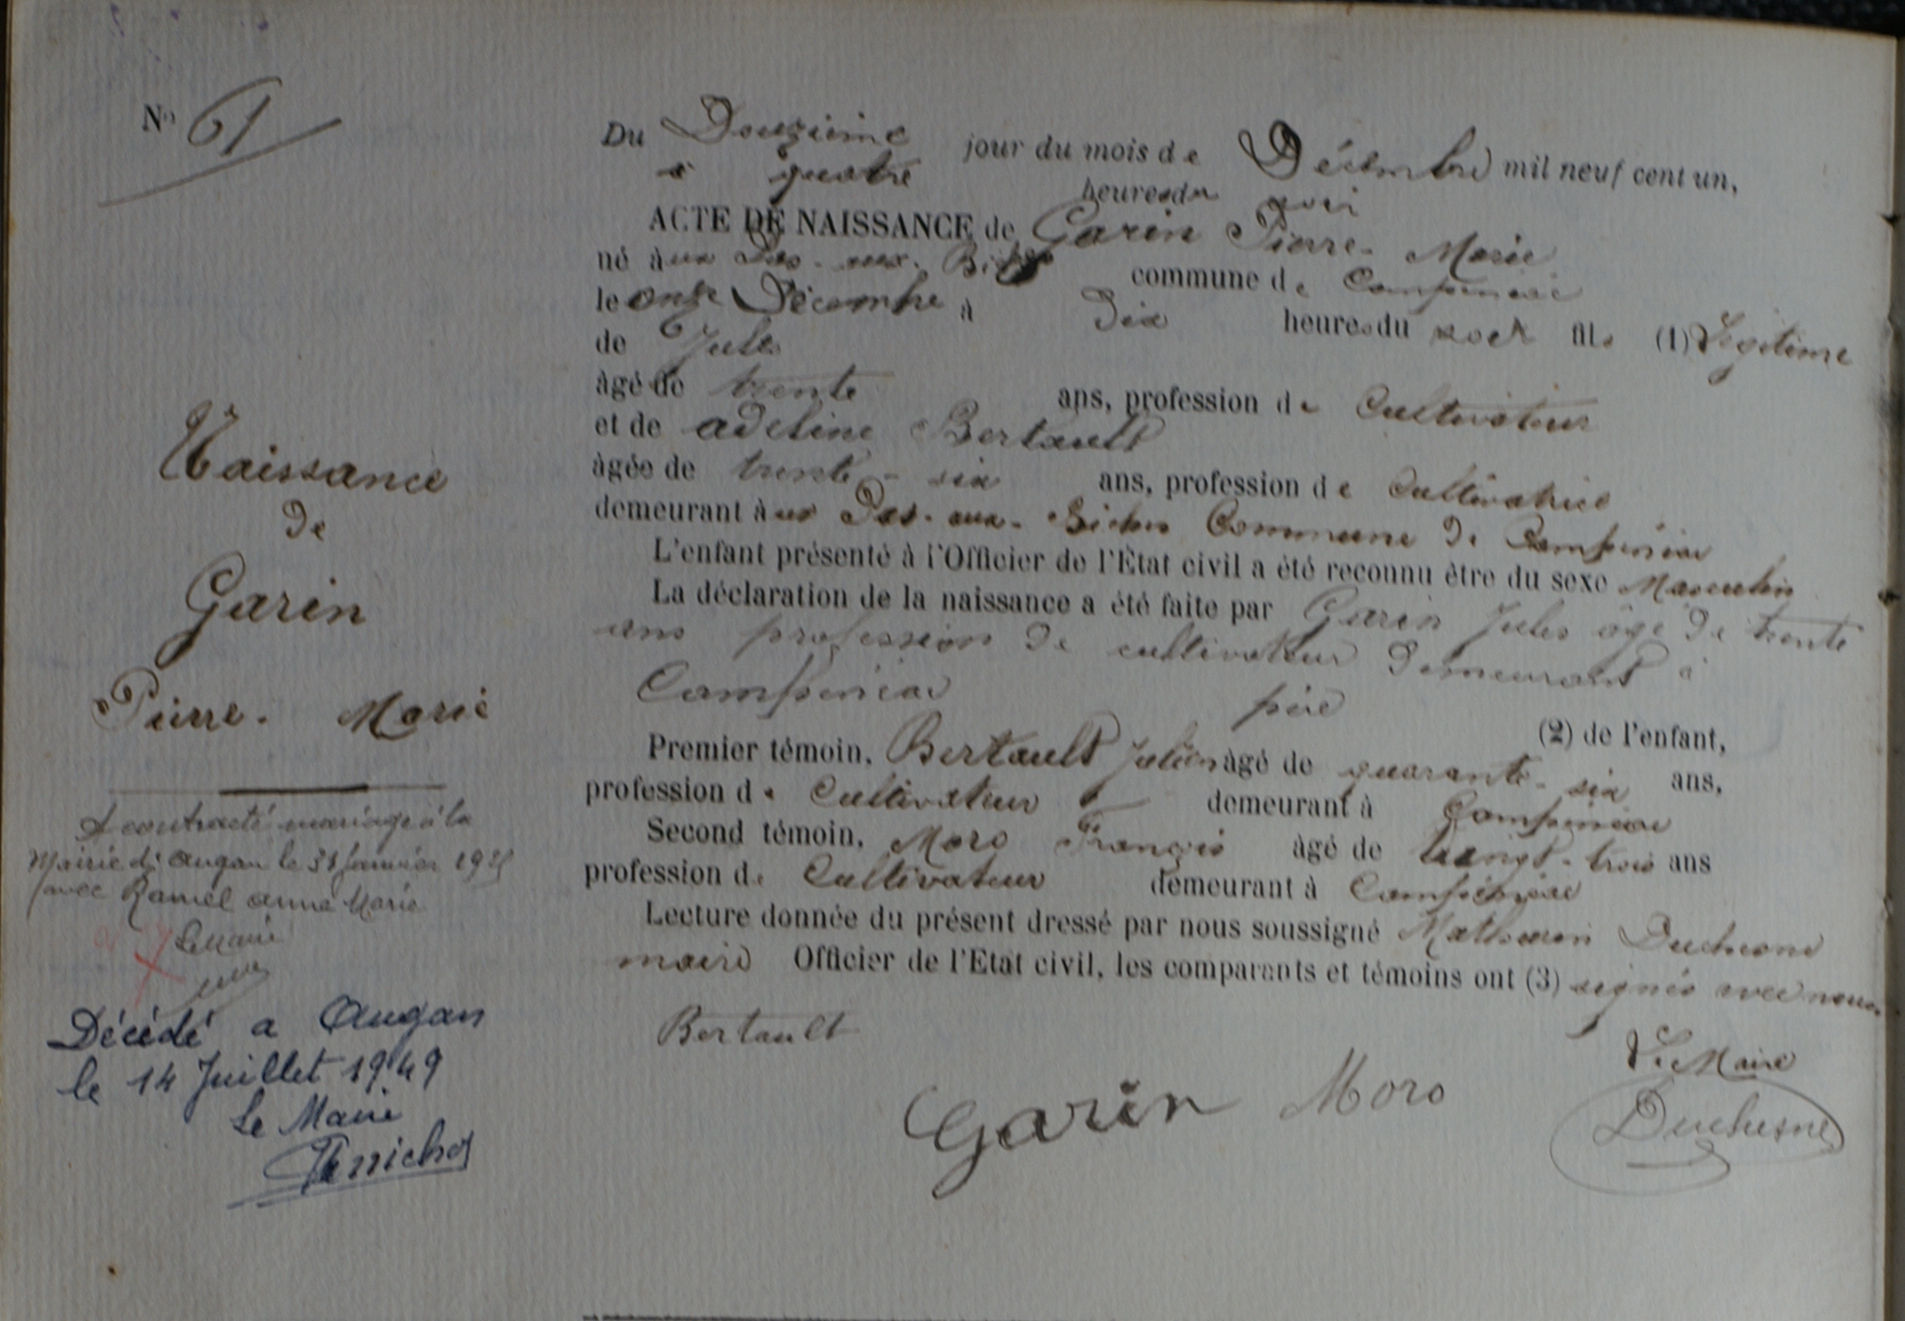 N° 61
Naissance
de
Garin
Pierre-Marie
A contracté mariage à la
Mairie d'Augan le 31 Janvier 19
avec Ramel Anna Marie
Le Maire
Décédé a Augan
le 14 Juillet 1949
Le Maire
Du Douzième jour du mois de Décembre mil neuf cent un,
à quatre heures du soir
ACTE DE NAISSANCE de Garin Pierre-Marie
né à au Pas-aux-Biches commune de Campénéac
le onze Décembre à Dix heures du soir fils (1) Légitime
de Jules
âgé de trente ans, profession de Cultivateur
et de Adeline Bertault
âgée de trente-six ans, profession de Cultivatrice
demeurant à au Pas-aux-Biches Commune de Campénéac
L'enfant présenté à l'Officier de l'État civil a été reconnu être du sexe Masculin
La déclaration de la naissance a été faite par Garin Jules âgé de trente
ans profession de cultivateur demeurant à
Campénéac père (2) de l'enfant,
Premier témoin, Bertault Julien âgé de quarante-six ans,
profession de Cultivateur demeurant à Campénéac
Second témoin, Moro François âgé de vingt-trois ans
profession de Cultivateur demeurant à Campénéac
Lecture donnée du présent dressé par nous soussigné Mathurin Duchesne
maire Officier de l'Etat civil, les comparants et témoins ont (3) signés avec nous
Bertault
Garin
Moro
Le Maire
Duchesne